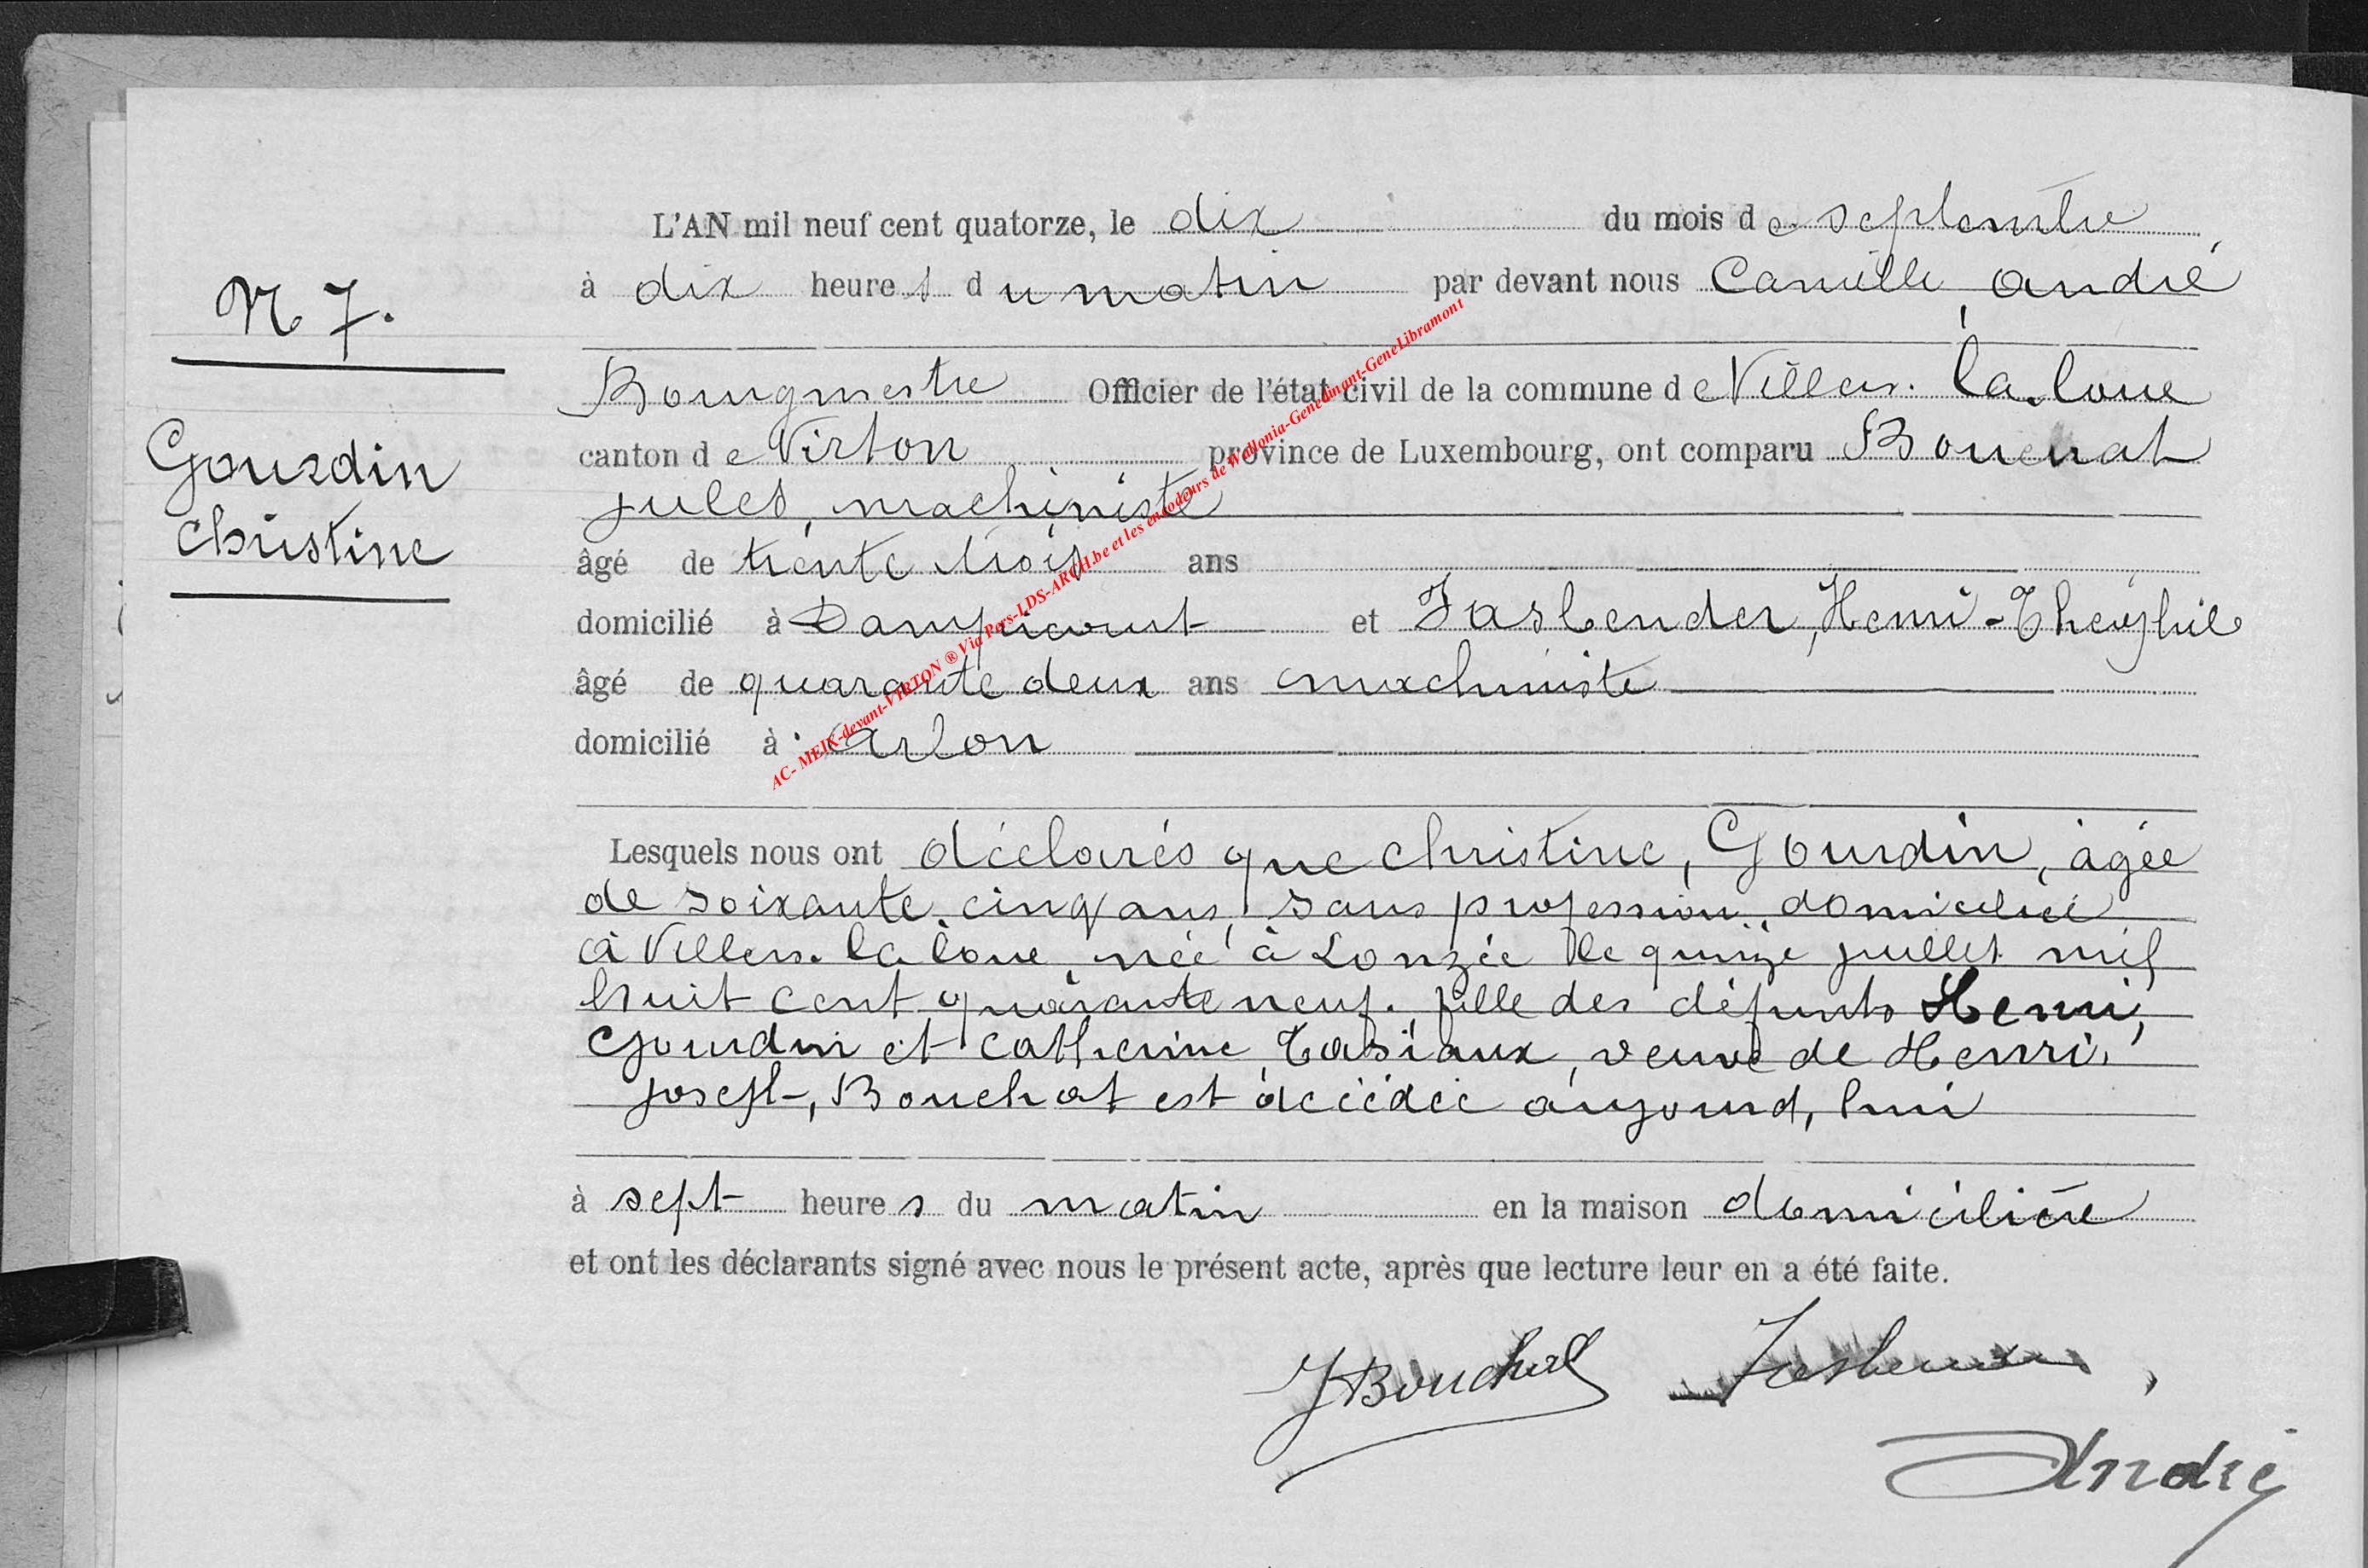 L'AN mil neuf cent quatorze, le dix du mois de septembre
à dix heures du matin par devant nous Camille, André
N 7.
Bourgmestre Officier de l'état civil de la commune de Villers. la. loue
canton de Virton province de Luxembourg, ont comparu Bouchat
Gourdin
jules, machiniste
Christine
âgé de trente trois ans
domicilié à Dampicourt et Fasbender, Henri-Théophile
âgé de quarante deux ans machiniste
domicilié à Arlon
AC- MEIX-devant-VIRTON ® Via Pers-LDS-ARCH.be et les encodeurs de Wallonia-Genedinant-GeneLibramont
Lesquels nous ont déclarés que christine, Gourdin, âgée
de soixante. cinq ans, sans profession, domiciliée
à Villers. la loue, née à Lonzée le quinze juillet mil
huit cent quarante neuf. fille des défunts Henri,
Gourdin et Catherine, Tasiaux, veuve de Henri,
joseph, Bouchat est décédée aujourd, hui
à sept heures du matin en la maison domicilière
et ont les déclarants signé avec nous le présent acte, après que lecture leur en a été faite.
JBouchat Fasbender
André